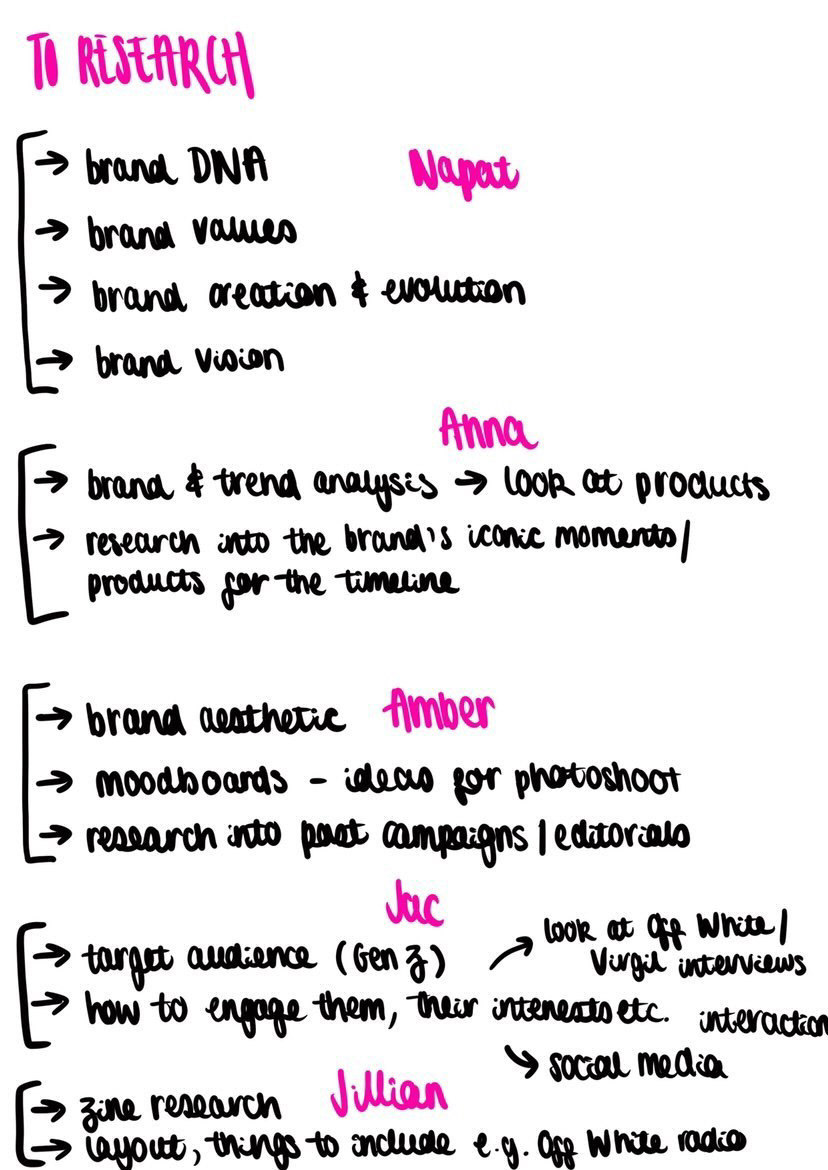 TO RESEARCH
→ brand DNA Napat
→ brand values
→ brand creation & evolution
→ brand vision
Anna
→ brand & trend analysis → look at products
→ research into the brand's iconic moments/
products for the timeline
→ brand aesthetic Amber
→ moodboards - ideas for photoshoot
→ research into past campaigns / editorials
Jac
→ target audience (Gen Z) → look at Off White/
Virgil interviews
→ how to engage them, their interests etc. interaction
→ social media
→ zine research Jillian
→ layout, things to include e.g. Off White radio